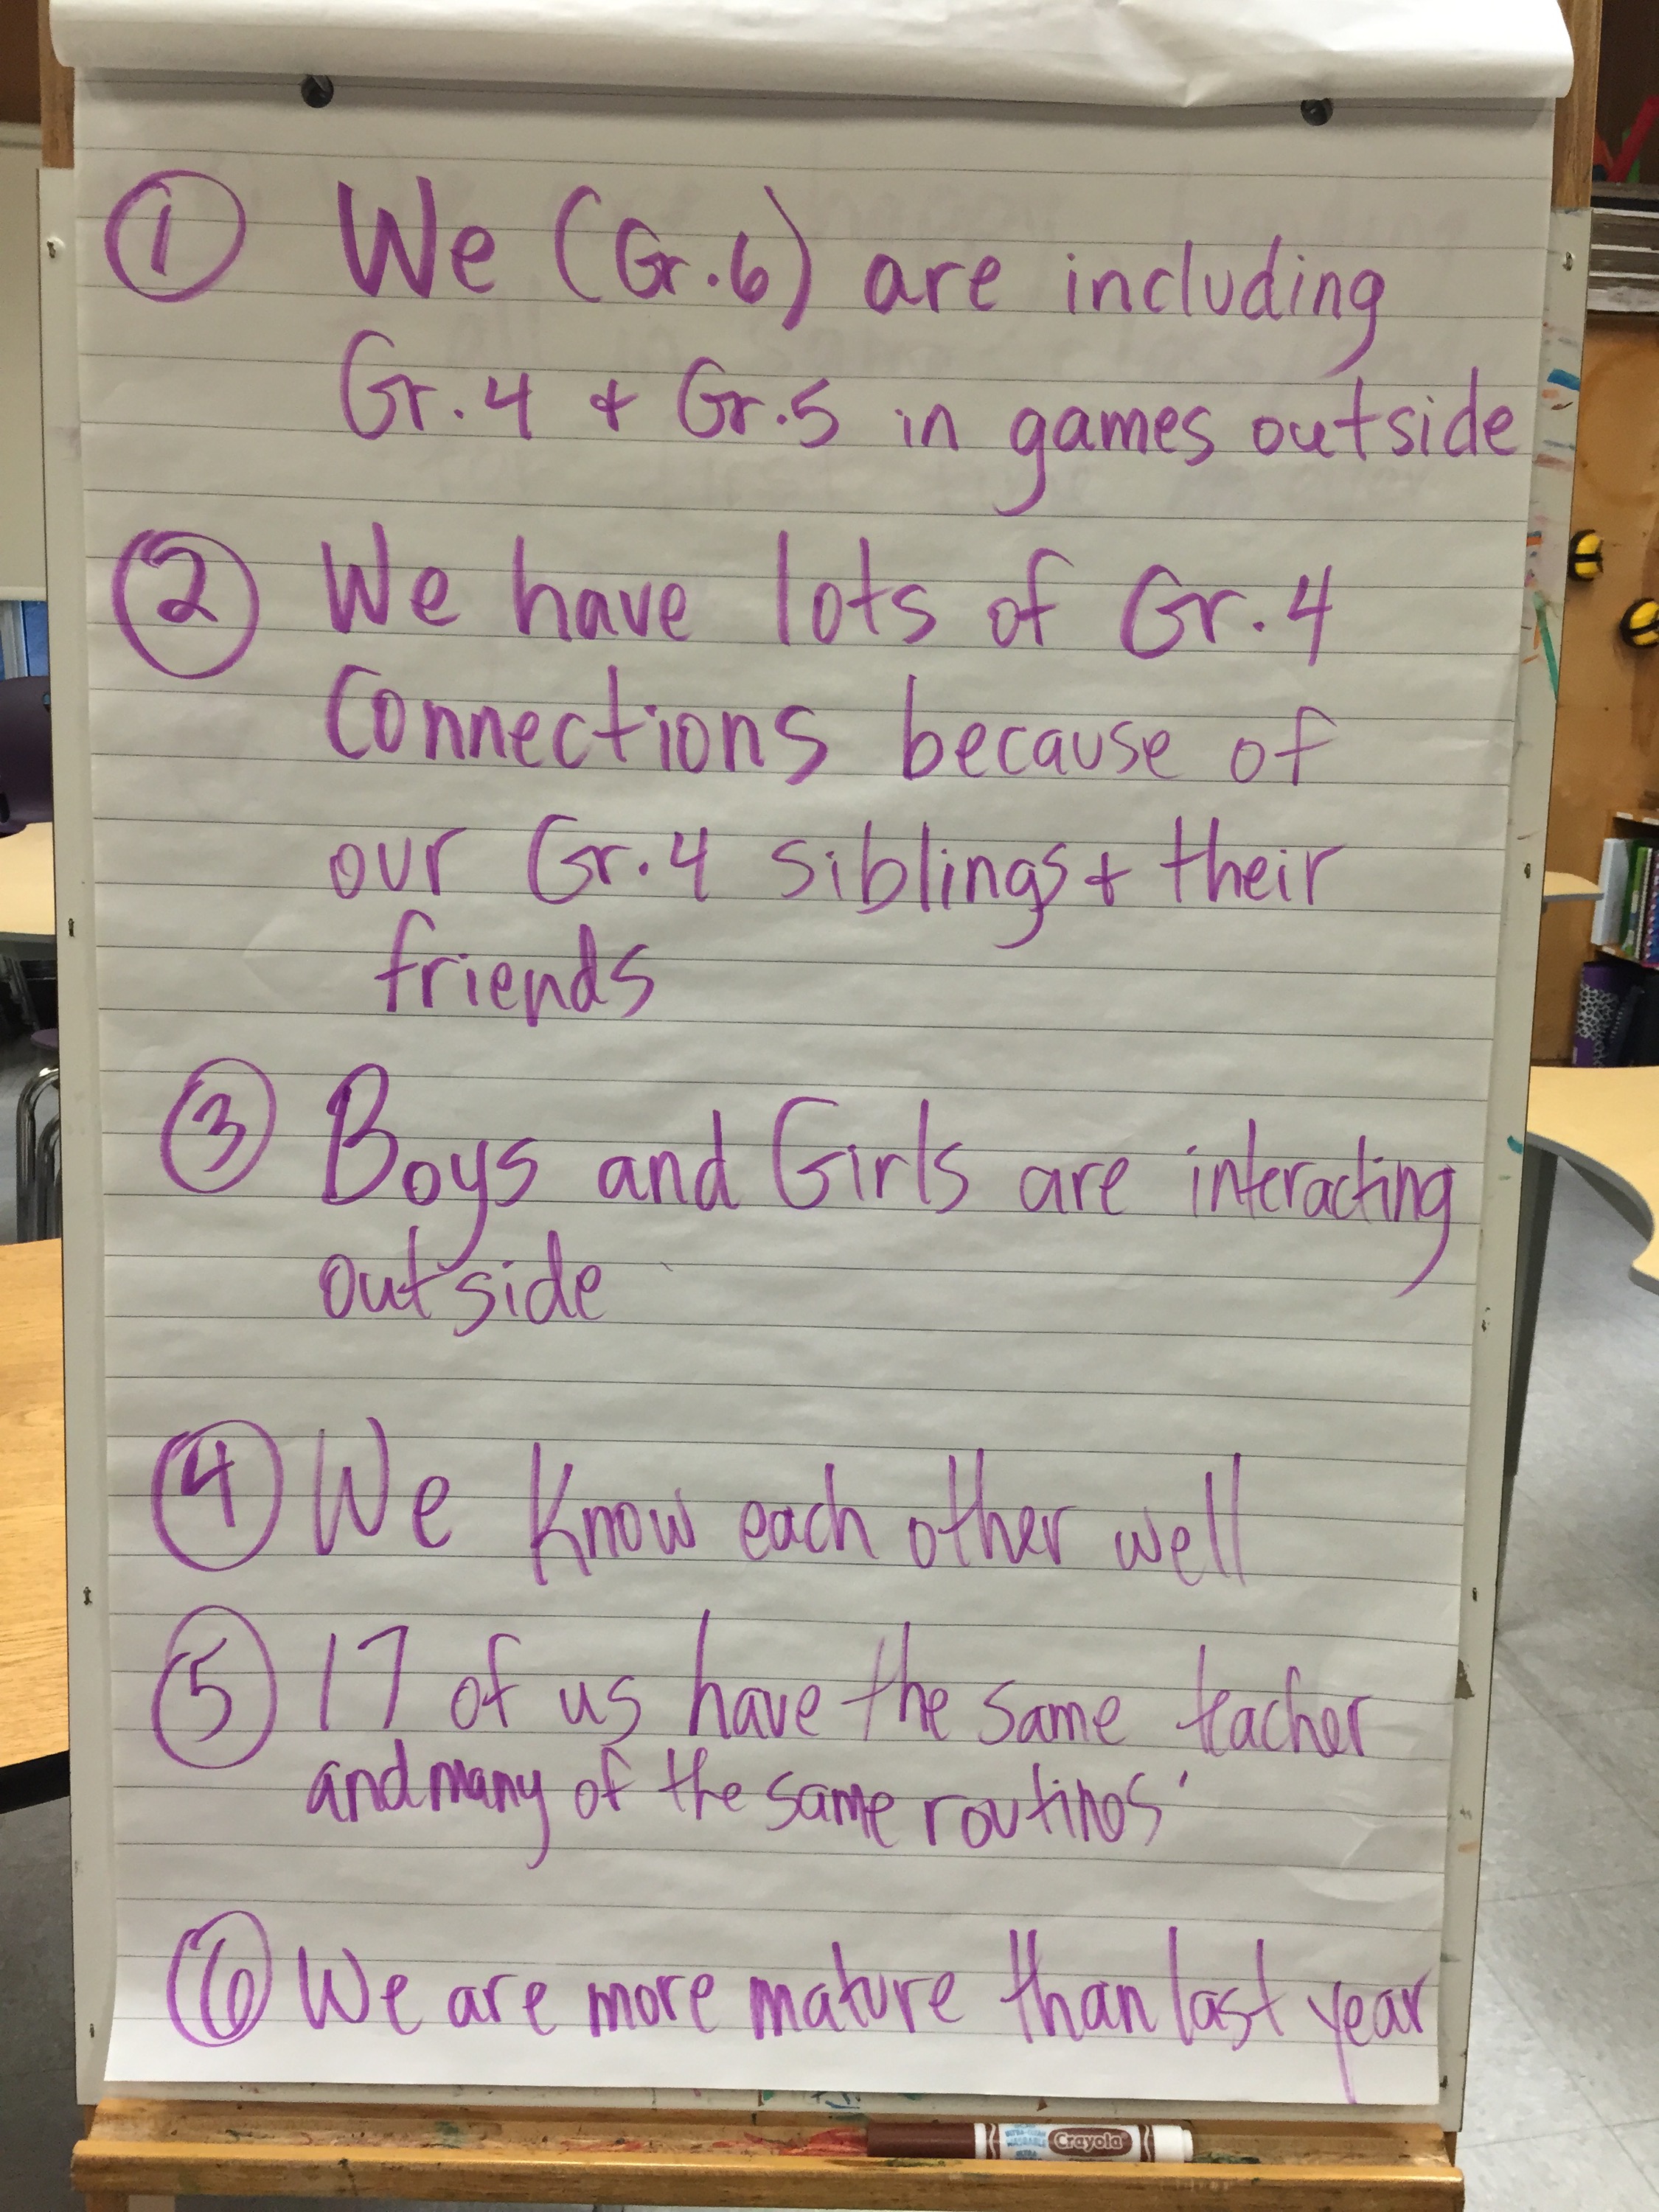 ① We (Gr.6) are including
Gr.4 + Gr.5 in games outside
② We have lots of Gr.4
Connections because of
our Gr.4 siblings + their
friends
③ Boys and Girls are interacting
outside
④ We know each other well
⑤ 17 of us have the same teacher
and many of the same routines
⑥ We are more mature than last year
Crayola